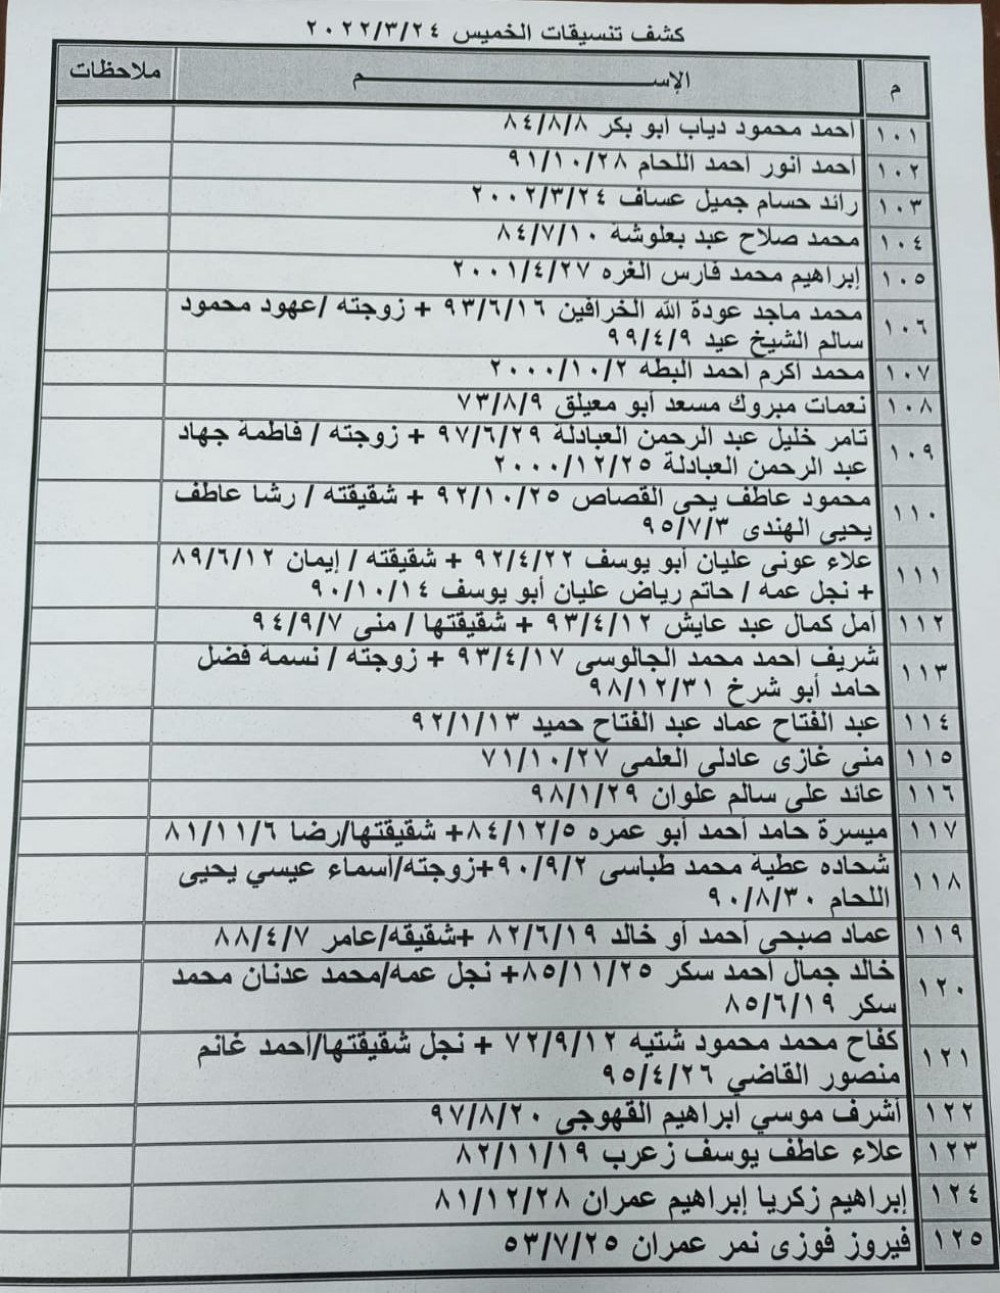 كشف تنسيقات الخميس ٢٠٢٢/٣/٢٤
م الإســـــــم ملاحظات
١٠١ احمد محمود دياب ابو بكر ٨٤/٨/٨
١٠٢ احمد انور احمد اللحام ٩١/١٠/٢٨
١٠٣ رائد حسام جميل عساف ٢٠٠٢/٣/٢٤
١٠٤ محمد صلاح عبد بعلوشة ٨٤/٧/١٠
١٠٥ إبراهيم محمد فارس الغره ٢٠٠١/٤/٢٧
١٠٦ محمد ماجد عودة الله الخرافين ٩٣/٦/١٦ + زوجته /عهود محمود
سالم الشيخ عيد ٩٩/٤/٩
١٠٧ محمد اكرم احمد البطه ٢٠٠٠/١٠/٢
١٠٨ نعمات مبروك مسعد أبو معيلق ٧٣/٨/٩
١٠٩ تامر خليل عبد الرحمن العبادلة ٩٧/٦/٢٩ + زوجته / فاطمة جهاد
عبد الرحمن العبادلة ٢٠٠٠/١٢/٢٥
١١٠ محمود عاطف يحى القصاص ٩٢/١٠/٢٥ + شقيقته / رشا عاطف
يحيى الهندى ٩٥/٧/٣
١١١ علاء عونى عليان أبو يوسف ٩٢/٤/٢٢ + شقيقته / إيمان ٨٩/٦/١٢
+ نجل عمه / حاتم رياض عليان أبو يوسف ٩٠/١٠/١٤
١١٢ أمل كمال عبد عايش ٩٣/٤/١٢ + شقيقتها / منى ٩٤/٩/٧
١١٣ شريف احمد محمد الجالوسى ٩٣/٤/١٧ + زوجته / نسمة فضل
حامد أبو شرخ ٩٨/١٢/٣١
١١٤ عبد الفتاح عماد عبد الفتاح حميد ٩٢/١/١٣
١١٥ منى غازى عادلى العلمى ٧١/١٠/٢٧
١١٦ عائد على سالم علوان ٩٨/١/٢٩
١١٧ ميسرة حامد أحمد أبو عمره ٨٤/١٢/٥+ شقيقتها/رضا ٨١/١١/٦
١١٨ شحاده عطية محمد طباسى ٩٠/٩/٢+زوجته/أسماء عيسي يحيى
اللحام ٩٠/٨/٣٠
١١٩ عماد صبحى أحمد أو خالد ٨٢/٦/١٩ +شقيقه/عامر ٨٨/٤/٧
١٢٠ خالد جمال أحمد سكر ٨٥/١١/٢٥+ نجل عمه/محمد عدنان محمد
سكر ٨٥/٦/١٩
١٢١ كفاح محمد محمود شتيه ٧٢/٩/١٢ + نجل شقيقتها/أحمد غانم
منصور القاضي ٩٥/٤/٢٦
١٢٢ أشرف موسي ابراهيم القهوجى ٩٧/٨/٢٠
١٢٣ علاء عاطف يوسف زعرب ٨٢/١١/١٩
١٢٤ إبراهيم زكريا إبراهيم عمران ٨١/١٢/٢٨
١٢٥ فيروز فوزى نمر عمران ٥٣/٧/٢٥